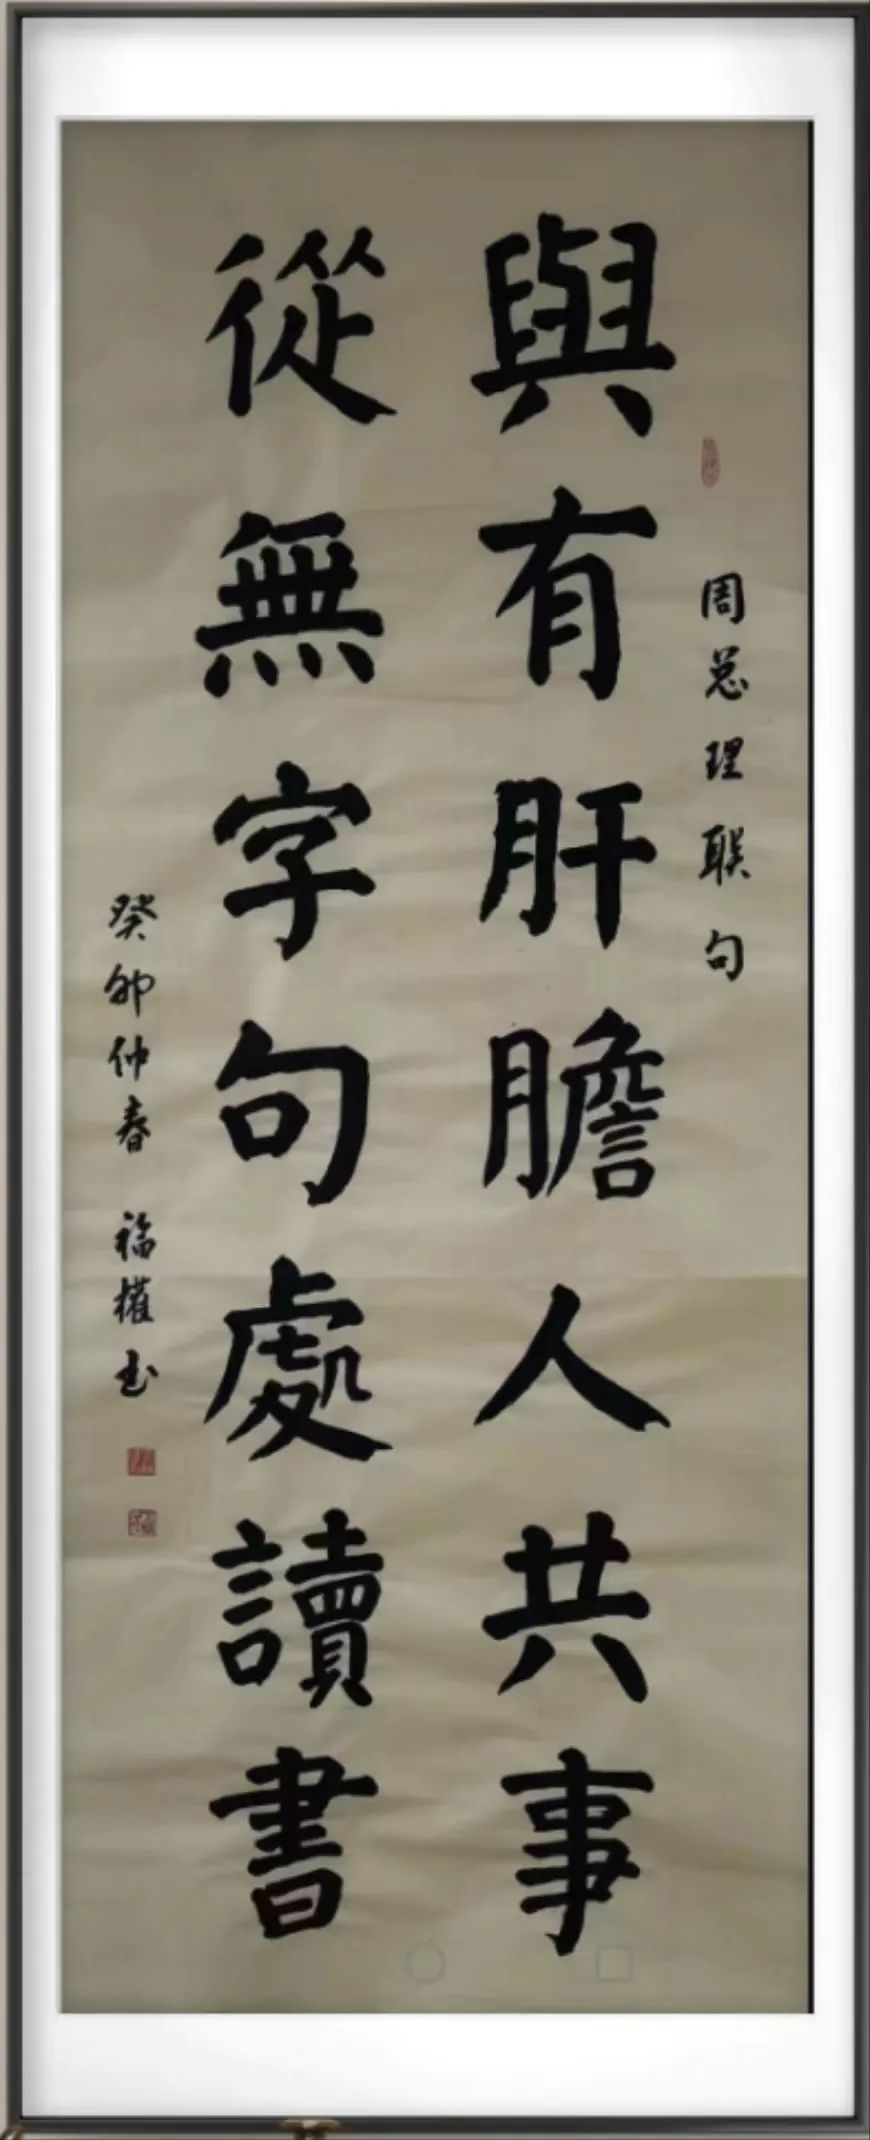 周总理联句
與有肝膽人共事
從無字句處讀書
癸卯仲春 福權书